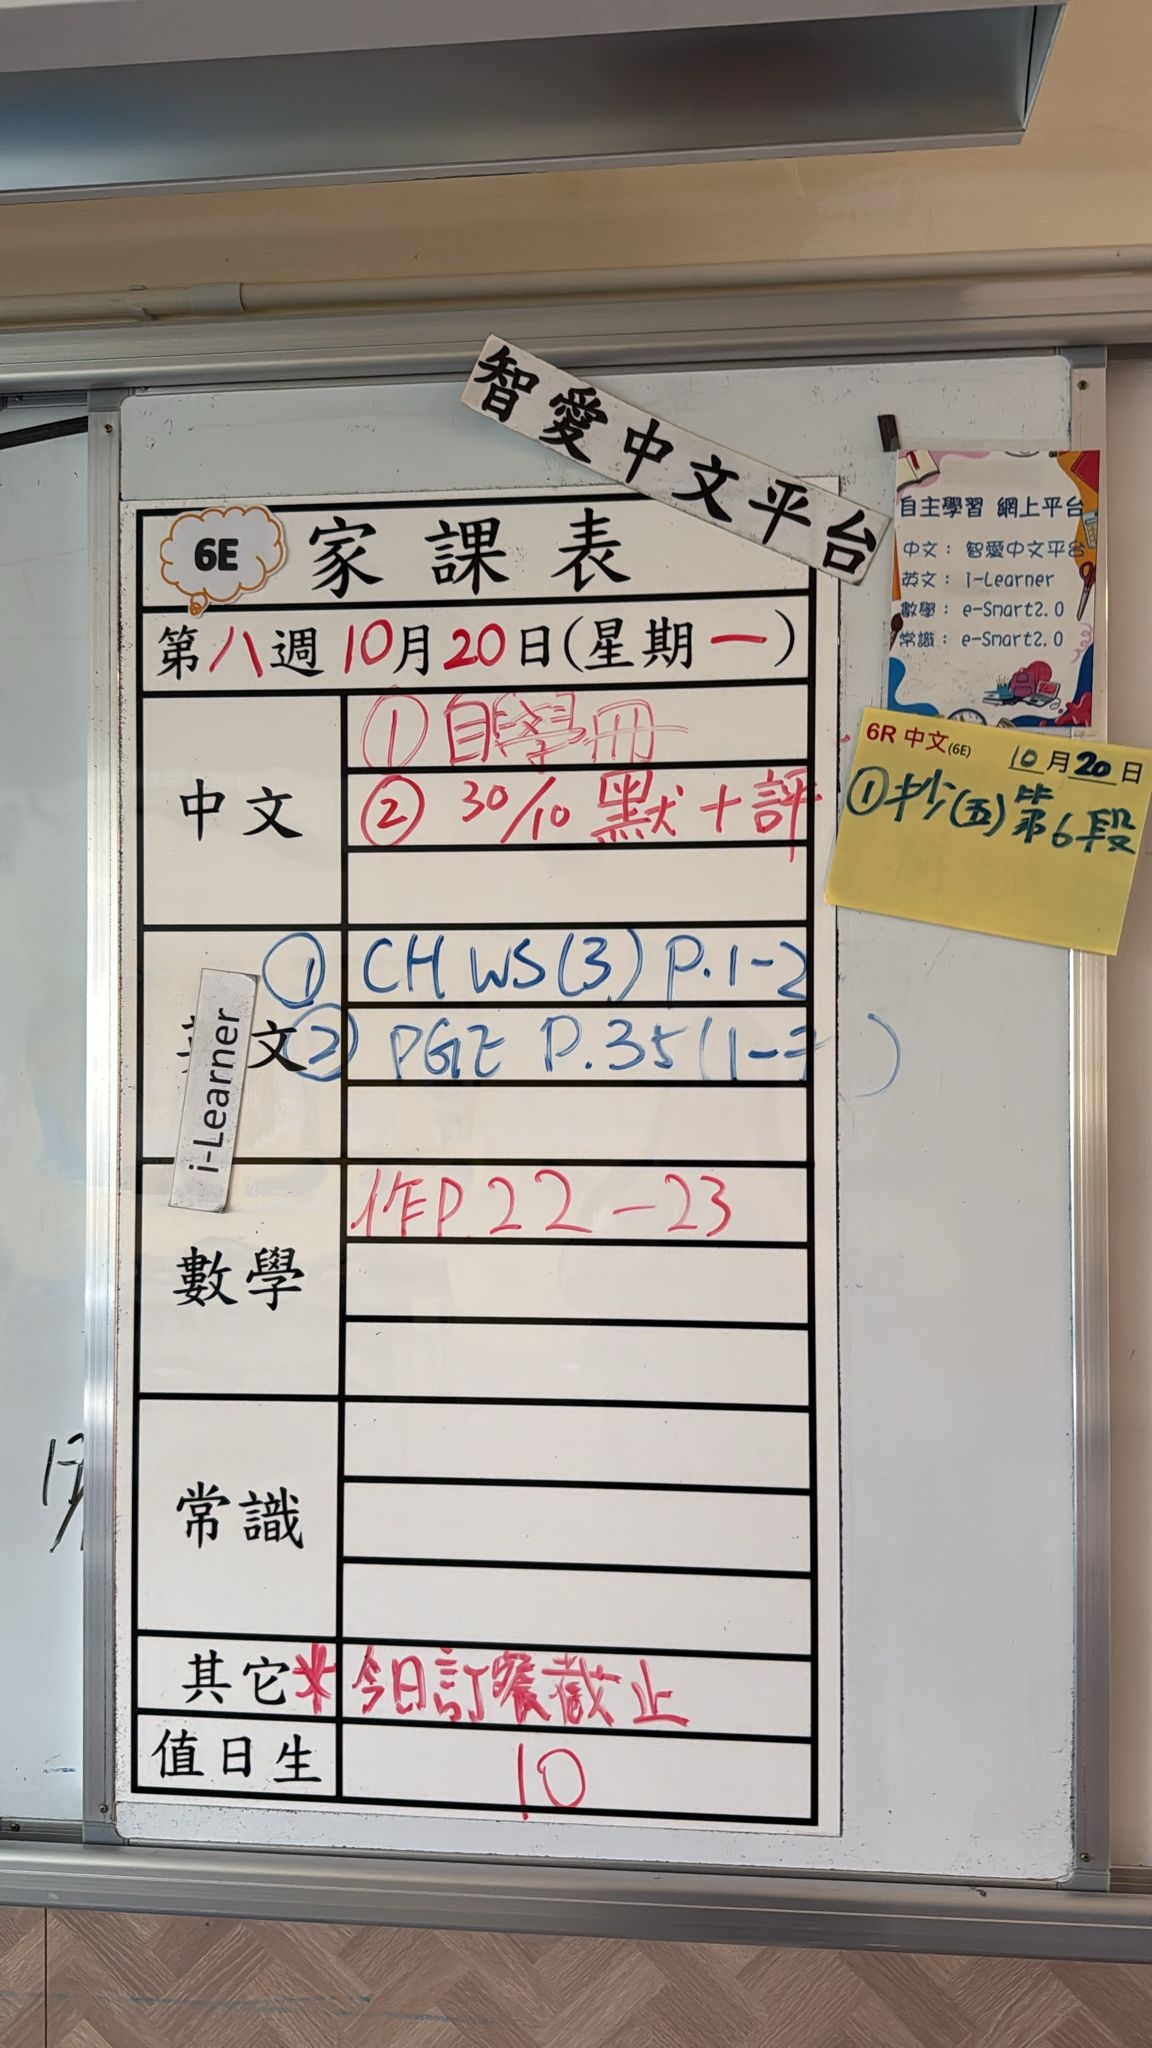 智愛中文平台
6E 家課表
第八週10月20日(星期一)
中文
① 自學冊
② 30/10 默+評
英文
i-Learner
① CH WS(3) P.1-2
② PGE P.35(1- )
數學
作P.22-23
常識
其它* 今日訂餐截止
值日生 10
自主學習 網上平台
中文: 智愛中文平台
英文: i-Learner
數學: e-Smart2.0
常識: e-Smart2.0
6R 中文(6E) 10月20日
①抄(五)第6段